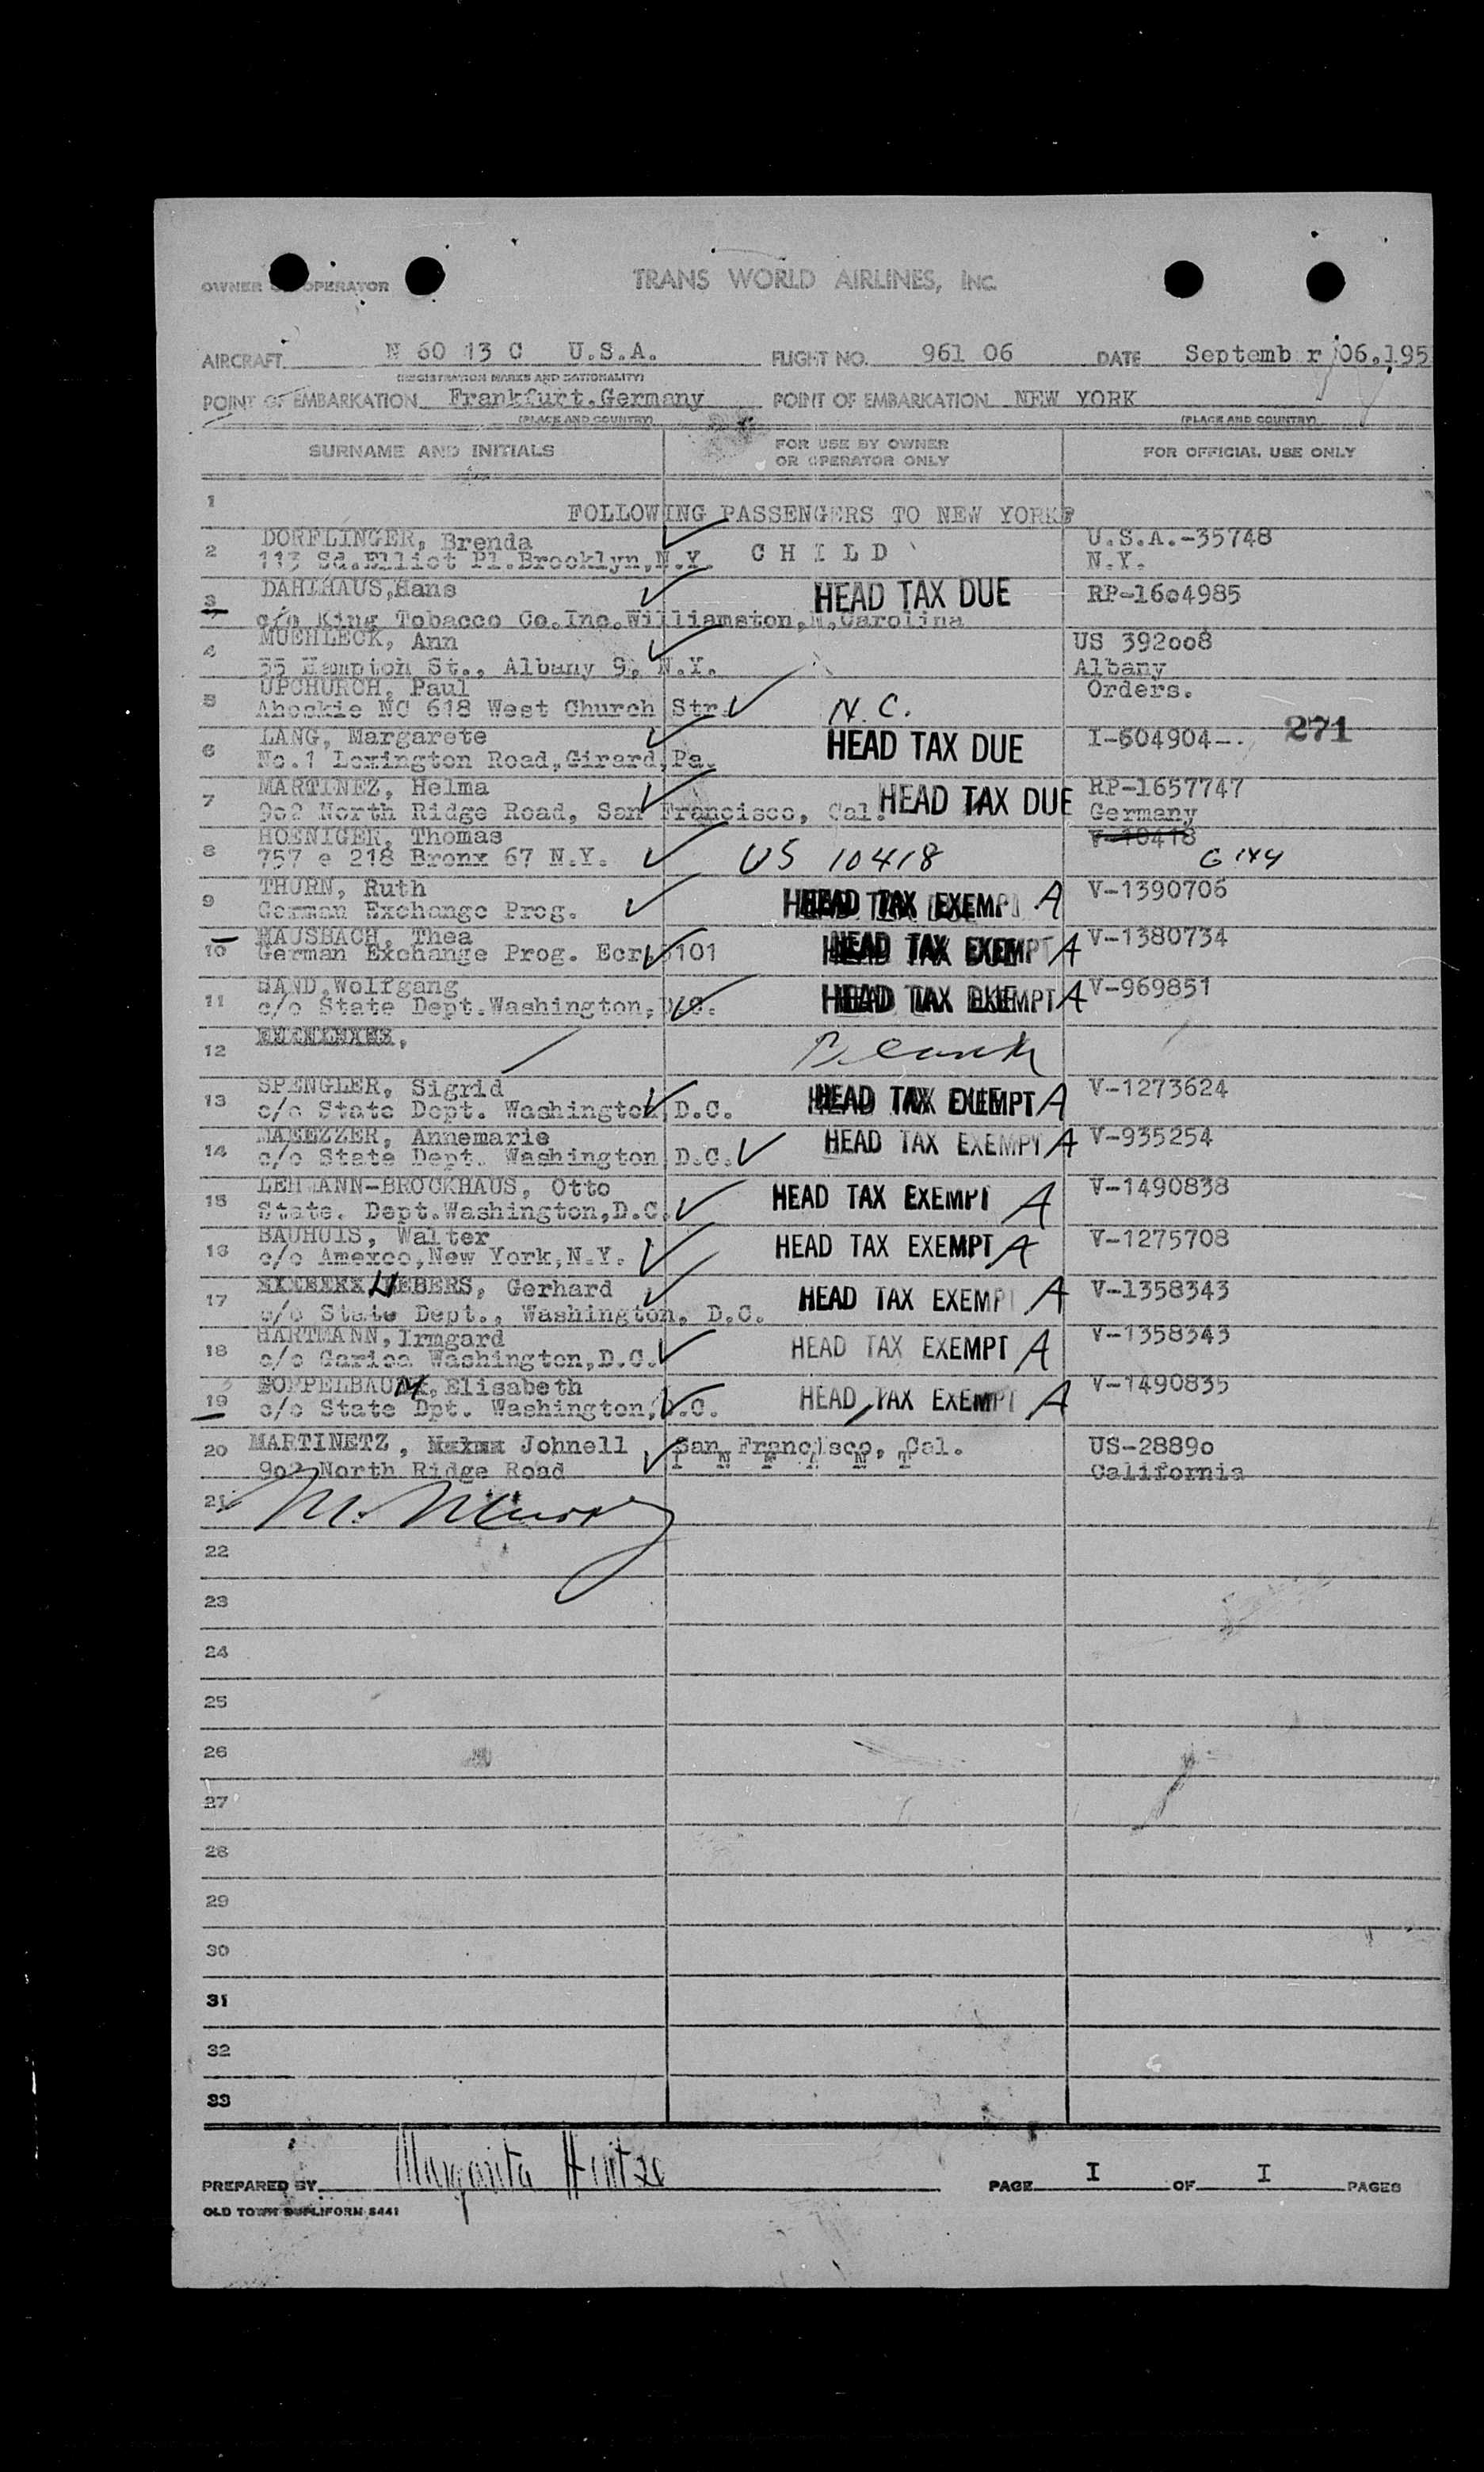 OWNER OPERATOR TRANS WORLD AIRLINES, INC.
AIRCRAFT N 60 13 C U.S.A. FLIGHT NO. 961 06 DATE Septemb r 06,195
(REGISTRATION MARKS AND NATIONALITY)
POINT OF EMBARKATION Frankfurt.Germany POINT OF EMBARKATION NEW YORK
(PLACE AND COUNTRY) (PLACE AND COUNTRY)
SURNAME AND INITIALS FOR USE BY OWNER OR OPERATOR ONLY FOR OFFICIAL USE ONLY
1
FOLLOWING PASSENGERS TO NEW YORK
2 DORFLINGER, Brenda U.S.A.-35748
113 Sd.Elliot Pl.Brooklyn,N.Y. C H I L D N.Y.
3 DAHLHAUS,Hans HEAD TAX DUE RP-16o4985
c/o King Tobacco Co.Inc.Williamston,N.Carolina
4 MUEHLECK, Ann US 392oo8
35 Hampton St., Albany 9, N.Y. Albany
5 UPCHURCH, Paul Orders.
Ahoskie NC 618 West Church Str. N.C.
271
6 LANG, Margarete HEAD TAX DUE I-604904-.
No.1 Lexington Road,Girard,Pa.
7 MARTINEZ, Helma HEAD TAX DUE RP-1657747
9o2 North Ridge Road, San Francisco, Cal. Germany
8 HOENIGER, Thomas V-10418
757 e 218 Bronx 67 N.Y. US 10418
9 THURN, Ruth HEAD TAX EXEMPT A V-1390706
German Exchange Prog.
10 HAUSBACH, Thea HEAD TAX EXEMPT A V-1380734
German Exchange Prog. Ecr. 101
11 SAND,Wolfgang HEAD TAX EXEMPT A V-969851
c/o State Dept.Washington,D.C.
12 Blank
13 SPENGLER, Sigrid HEAD TAX EXEMPT A V-1273624
c/o State Dept. Washington,D.C.
14 Annemarie HEAD TAX EXEMPT A V-935254
c/o State Dept. Washington D.C.
15 LEHMANN-BROCKHAUS, Otto HEAD TAX EXEMPT A V-1490838
State. Dept.Washington,D.C.
16 BAUHUIS, Walter HEAD TAX EXEMPT A V-1275708
c/o Amexco,New York,N.Y.
17 Gerhard HEAD TAX EXEMPT A V-1358343
c/o State Dept., Washington, D.C.
18 HARTMANN,Irmgard HEAD TAX EXEMPT A V-1358343
c/o Carica Washington,D.C.
19 Elisabeth HEAD TAX EXEMPT A V-1490835
c/o State Dpt. Washington,D.C.
20 MARTINETZ, Johnell San Francisco, Cal. US-2889o
9o2 North Ridge Road I N F A N T California
21
22
23
24
25
26
27
28
29
30
31
32
33
PREPARED BY Margarita PAGE I OF I PAGES
OLD TOWN DUPLIFORM 5441